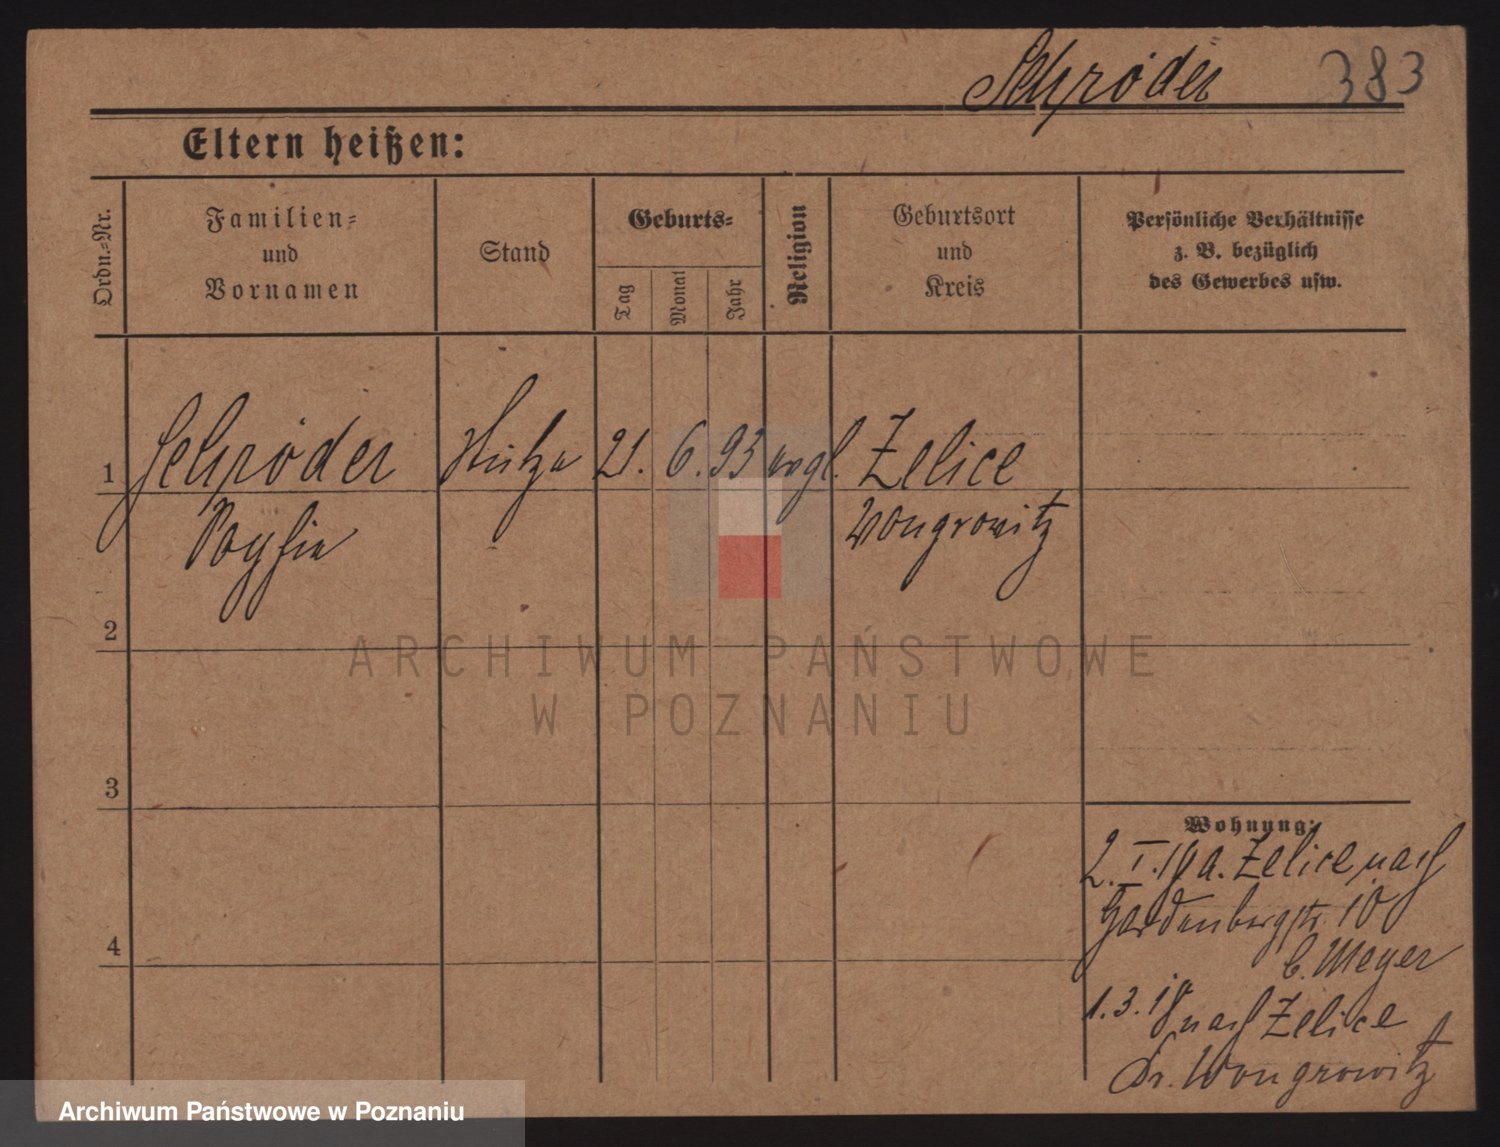 Schröder 383
Eltern heißen:
Ordn.-Nr.
Familien-
und
Vornamen
Stand
Geburts-
Tag
Monat
Jahr
Religion
Geburtsort
und
Kreis
Persönliche Verhältnisse
z. B. bezüglich
des Gewerbes usw.
1 Schröder 21. 6. 93 evgl. Zelice
Sophie Wongrowitz
2
3
4
Wohnung:
2. I. 19 a. Zelice nach
Hardenbergstr. 10
b. Meyer
1. 3. 19 nach Zelice
Kr. Wongrowitz
ARCHIWUM PAŃSTWOWE
W POZNANIU
Archiwum Państwowe w Poznaniu